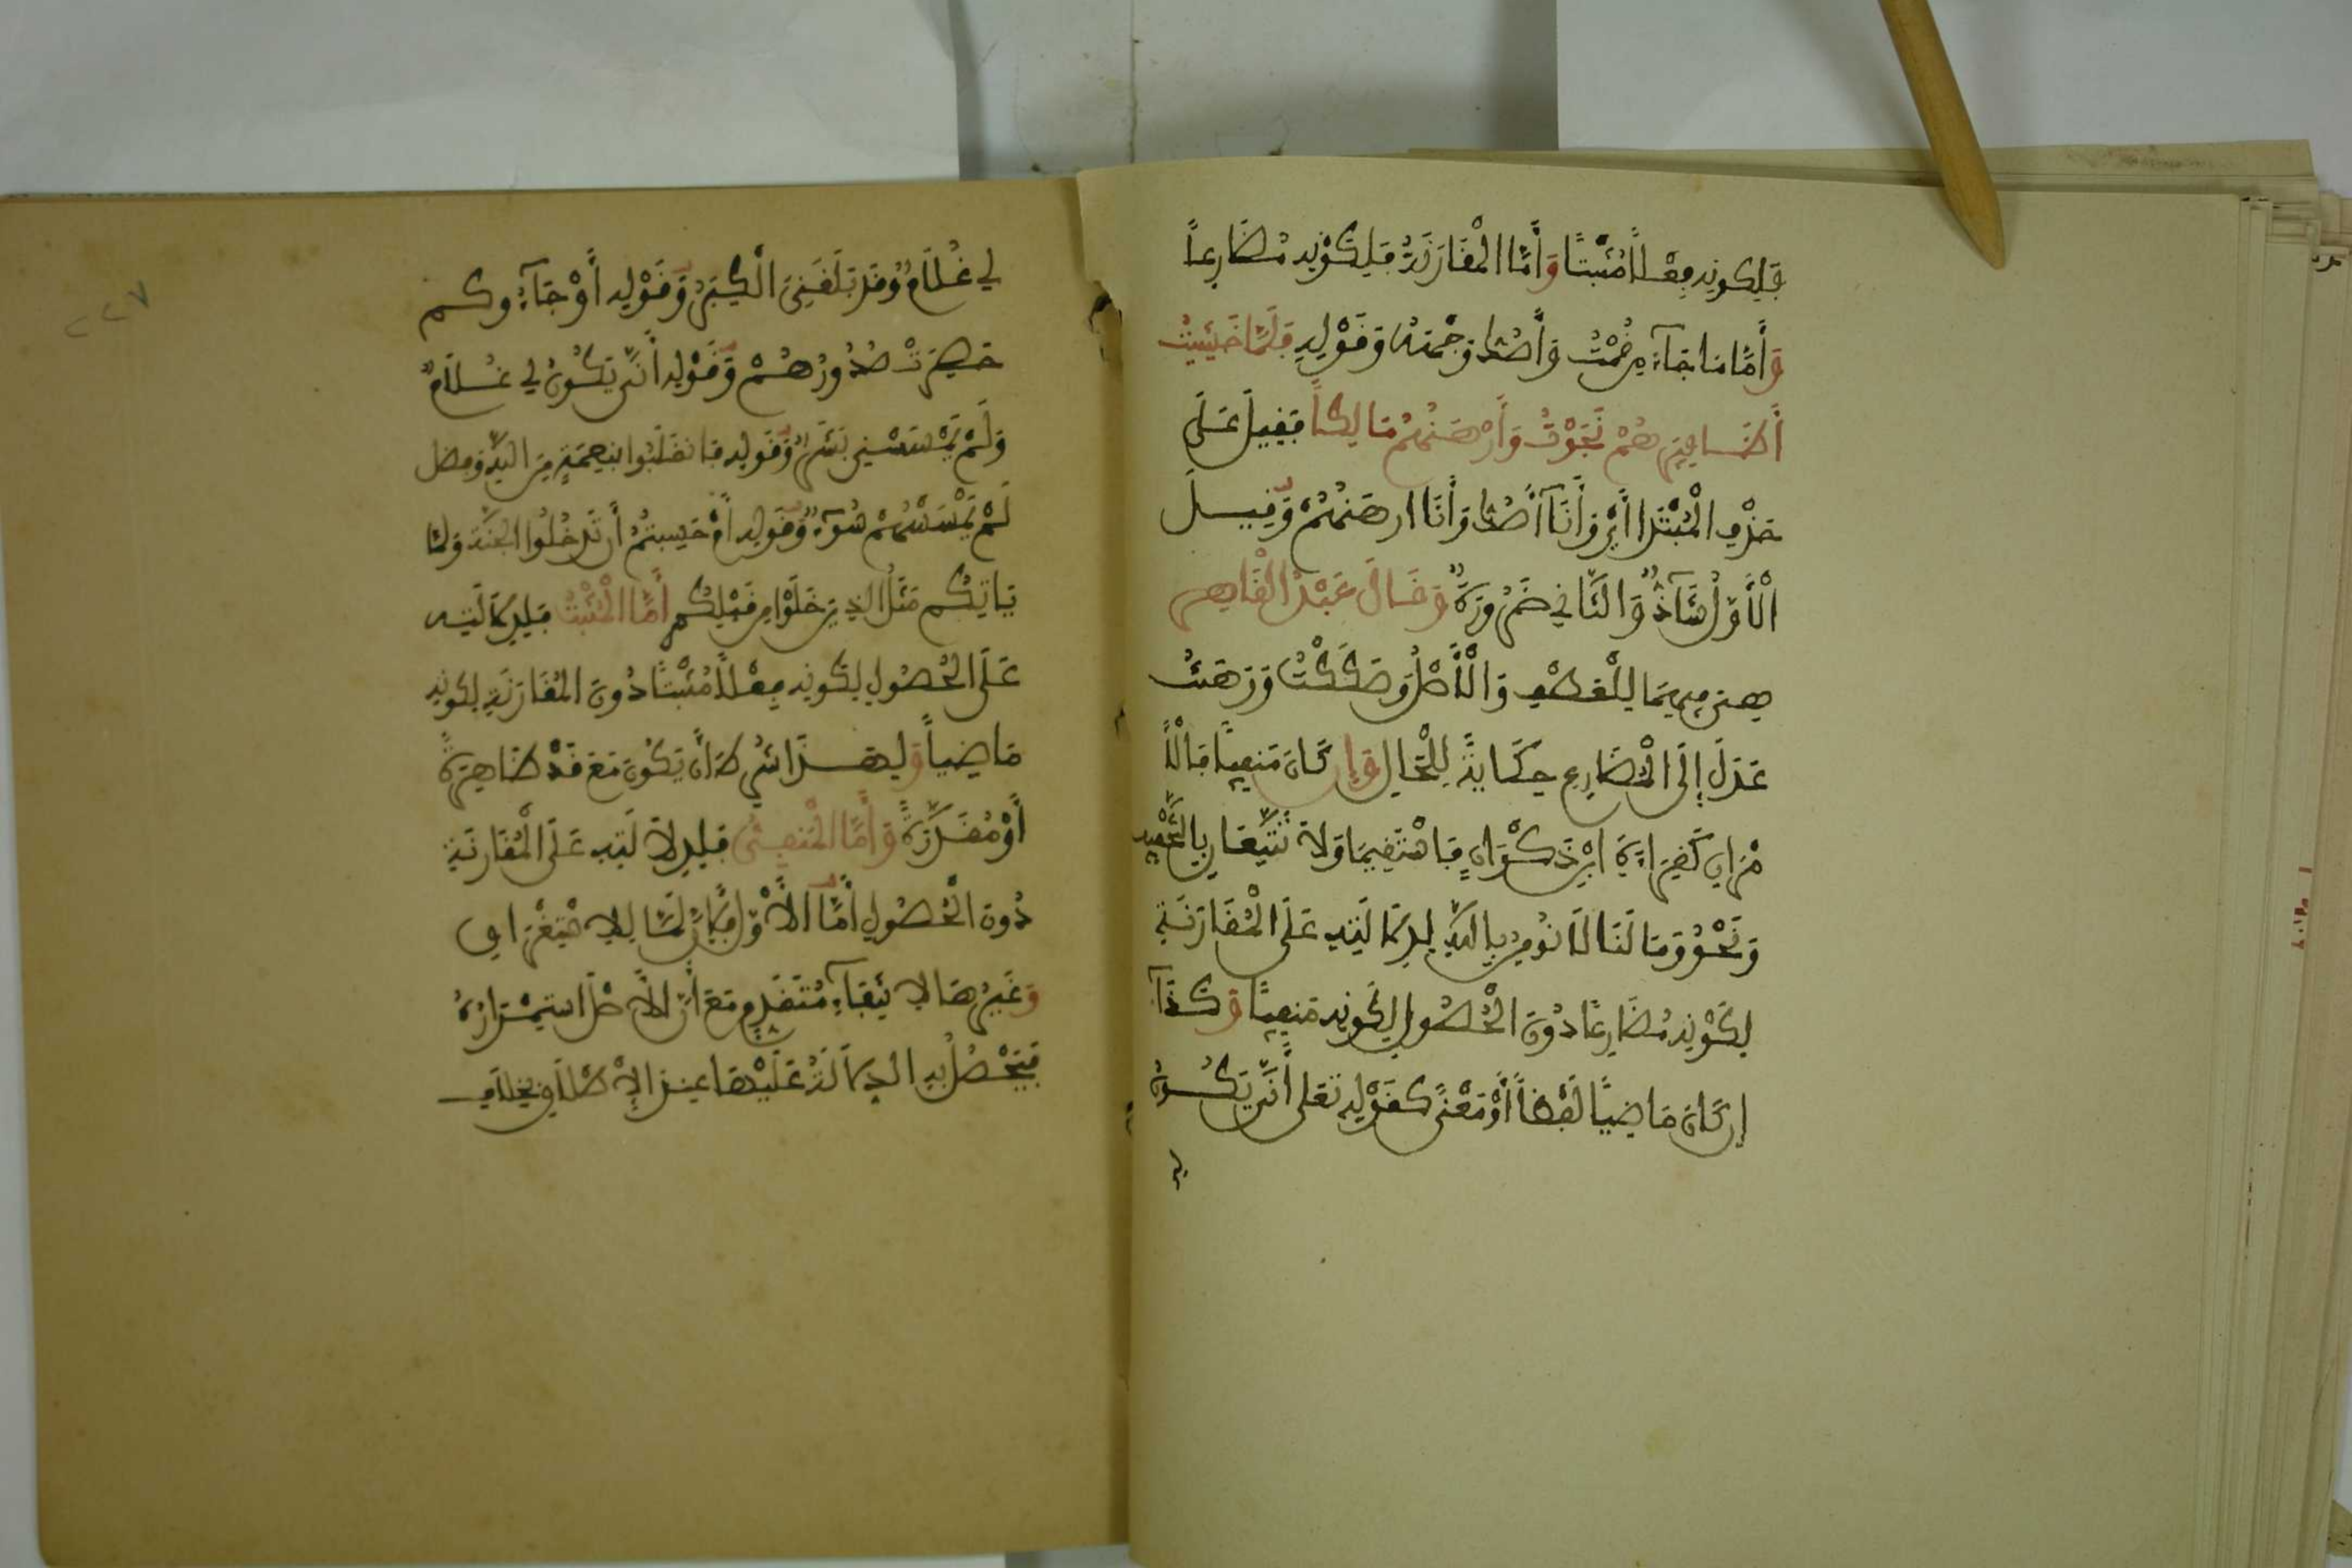 فَلِكونِهِ فِعْلاً مُثْبَتًا وَأَمَّا الْمُقَارَنَةُ فَلِكَوْنِهِ مُضَارِعاً
وَأَمَّا مَا جَآءَ مِنْ قُمْتُ وَأَصُكُّ وَجْهَهُ وَقَوْلِهِ فَلَمَّا خَشِيتُ
أَظَافِيرَهُمْ نَجَوْتُ وَأَرْهَنُهُمْ مَالِكاً فَقِيلَ عَلَى
حَذْفِ الْمُبْتَدَا أَيْ وَأَنَآ أَصُكُّ وَأَنَا أرهَنُهُمْ وَقِيلَ
الْأَوَّلُ شَآذٌّ وَالثَّانِي ضَرُورَةٌ وَقَالَ عَبْدُ الْقَاهِرِ
هِيَ فِيهِمَا لِلْعَطْفِ وَالْأَصْلُ وَصَكَكْتُ وَرَهَنْتُ
عَدَلَ إِلَى الْمُضَارِعِ حِكَايَةً لِلْحَالِ وَإِن كَانَ مَنفِيًّا فَالْأَ
مْرَانِ كَقِرَاءَةِ ابْنِ ذَكْوَانٍ فَاسْتَقِيمَا وَلاَ تَتَّبِعَانِ بِالتَّخْفِيفِ
وَنَحْوُ وَمَا لَنَا لَا نُومِنُ بِاللَّهِ لِدِلَالَتِهِ عَلَى الْمُقَارَنَةِ
لِكَوْنِهِ مُضَارِعًا دُونَ الْحُصُولِ لِكَوْنِهِ مَنفِيًّا وَكَذَا
إِن كَانَ مَاضِيًا لَفْظاً أَوْ مَعْنًى كَقَوْلِهِ تَعَلى أَنَّى يَكُونُ
لي
لِي غُلَامٌ وَقَدْ بَلَغَنِيَ الْكِبَرُ وَقَوْلِهِ أَوْ جَآءُوكم
حَصِرَتْ صُدُورُهُمْ وَقَوْلِهِ أَنَّى يَكُونُ لِي غُلاَمٌ
وَلَمْ يَمْسَسْنِي بَشَرٌ وَقَولِهِ فَانقَلَبُوا بِنِعْمَةٍ مِنَ اللَّهِ وَفضل
لَمْ يَمْسَسْهُمْ سُوٓءٌ وَقَولِهِ أَمْ حَسِبتُمُ أَن تَدخُلُوا الجَنَّةَ وَلَمَّا
يَاتِكُم مَثَلُ الذِينَ خَلَوْا مِن قَبْلِكُم أَمَّا الْمُثْبَتُ فَلِدِلَالَتِهِ
عَلَى الْحُصُولِ لِكَونِهِ فِعْلاً مُثْبَتًا دُونَ الْمُقَارَنَةِ لِكَونِهِ
مَاضِياً وَلِهَذَا شُرِطَ أَن يَكُونَ مَعَ قَدْ ظَاهِرَةً
أَوْ مُقَدَّرَةً وَأَمَّا الْمَنفِيُّ فَلِدِلاَلَتِهِ عَلَى الْمُقَارَنَةِ
دُونَ الْحُصُولِ أَمَّا الأَوَّلُ فَلِأَنَّ لَمَّا لِلاِسْتِغْرَاقِ
وَغَيْرُهَا لاِنْتِفَآءِ مُتَقَدِّمٍ مَعَ أَنَّ الْأَصْلَ اسْتِمْرَارُهُ
فَيَحْصُلُ بِهِ الدِّلَالَةُ عَلَيْهَا عِندَ الاِطْلَاقِ بِخِلَافِ
٢٢٧